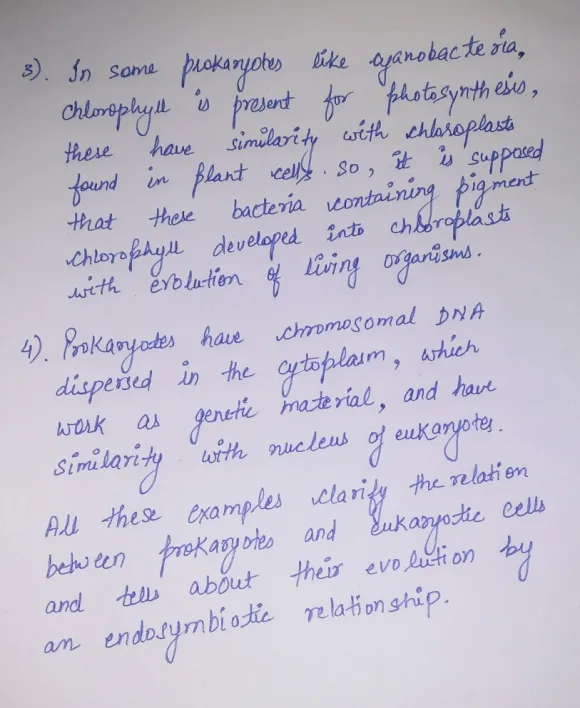 3). In some prokaryotes like cyanobacteria,
chlorophyll is present for photosynthesis,
these have similarity with chloroplasts
found in plant cells. so, it is supposed
that these bacteria containing pigment
chlorophyll developed into chloroplasts
with evolution of living organisms.
4). Prokaryotes have chromosomal DNA
dispersed in the cytoplasm, which
work as genetic material, and have
similarity with nucleus of eukaryotes.
All these examples clarify the relation
between prokaryotes and eukaryotic cells
and tells about their evolution by
an endosymbiotic relationship.